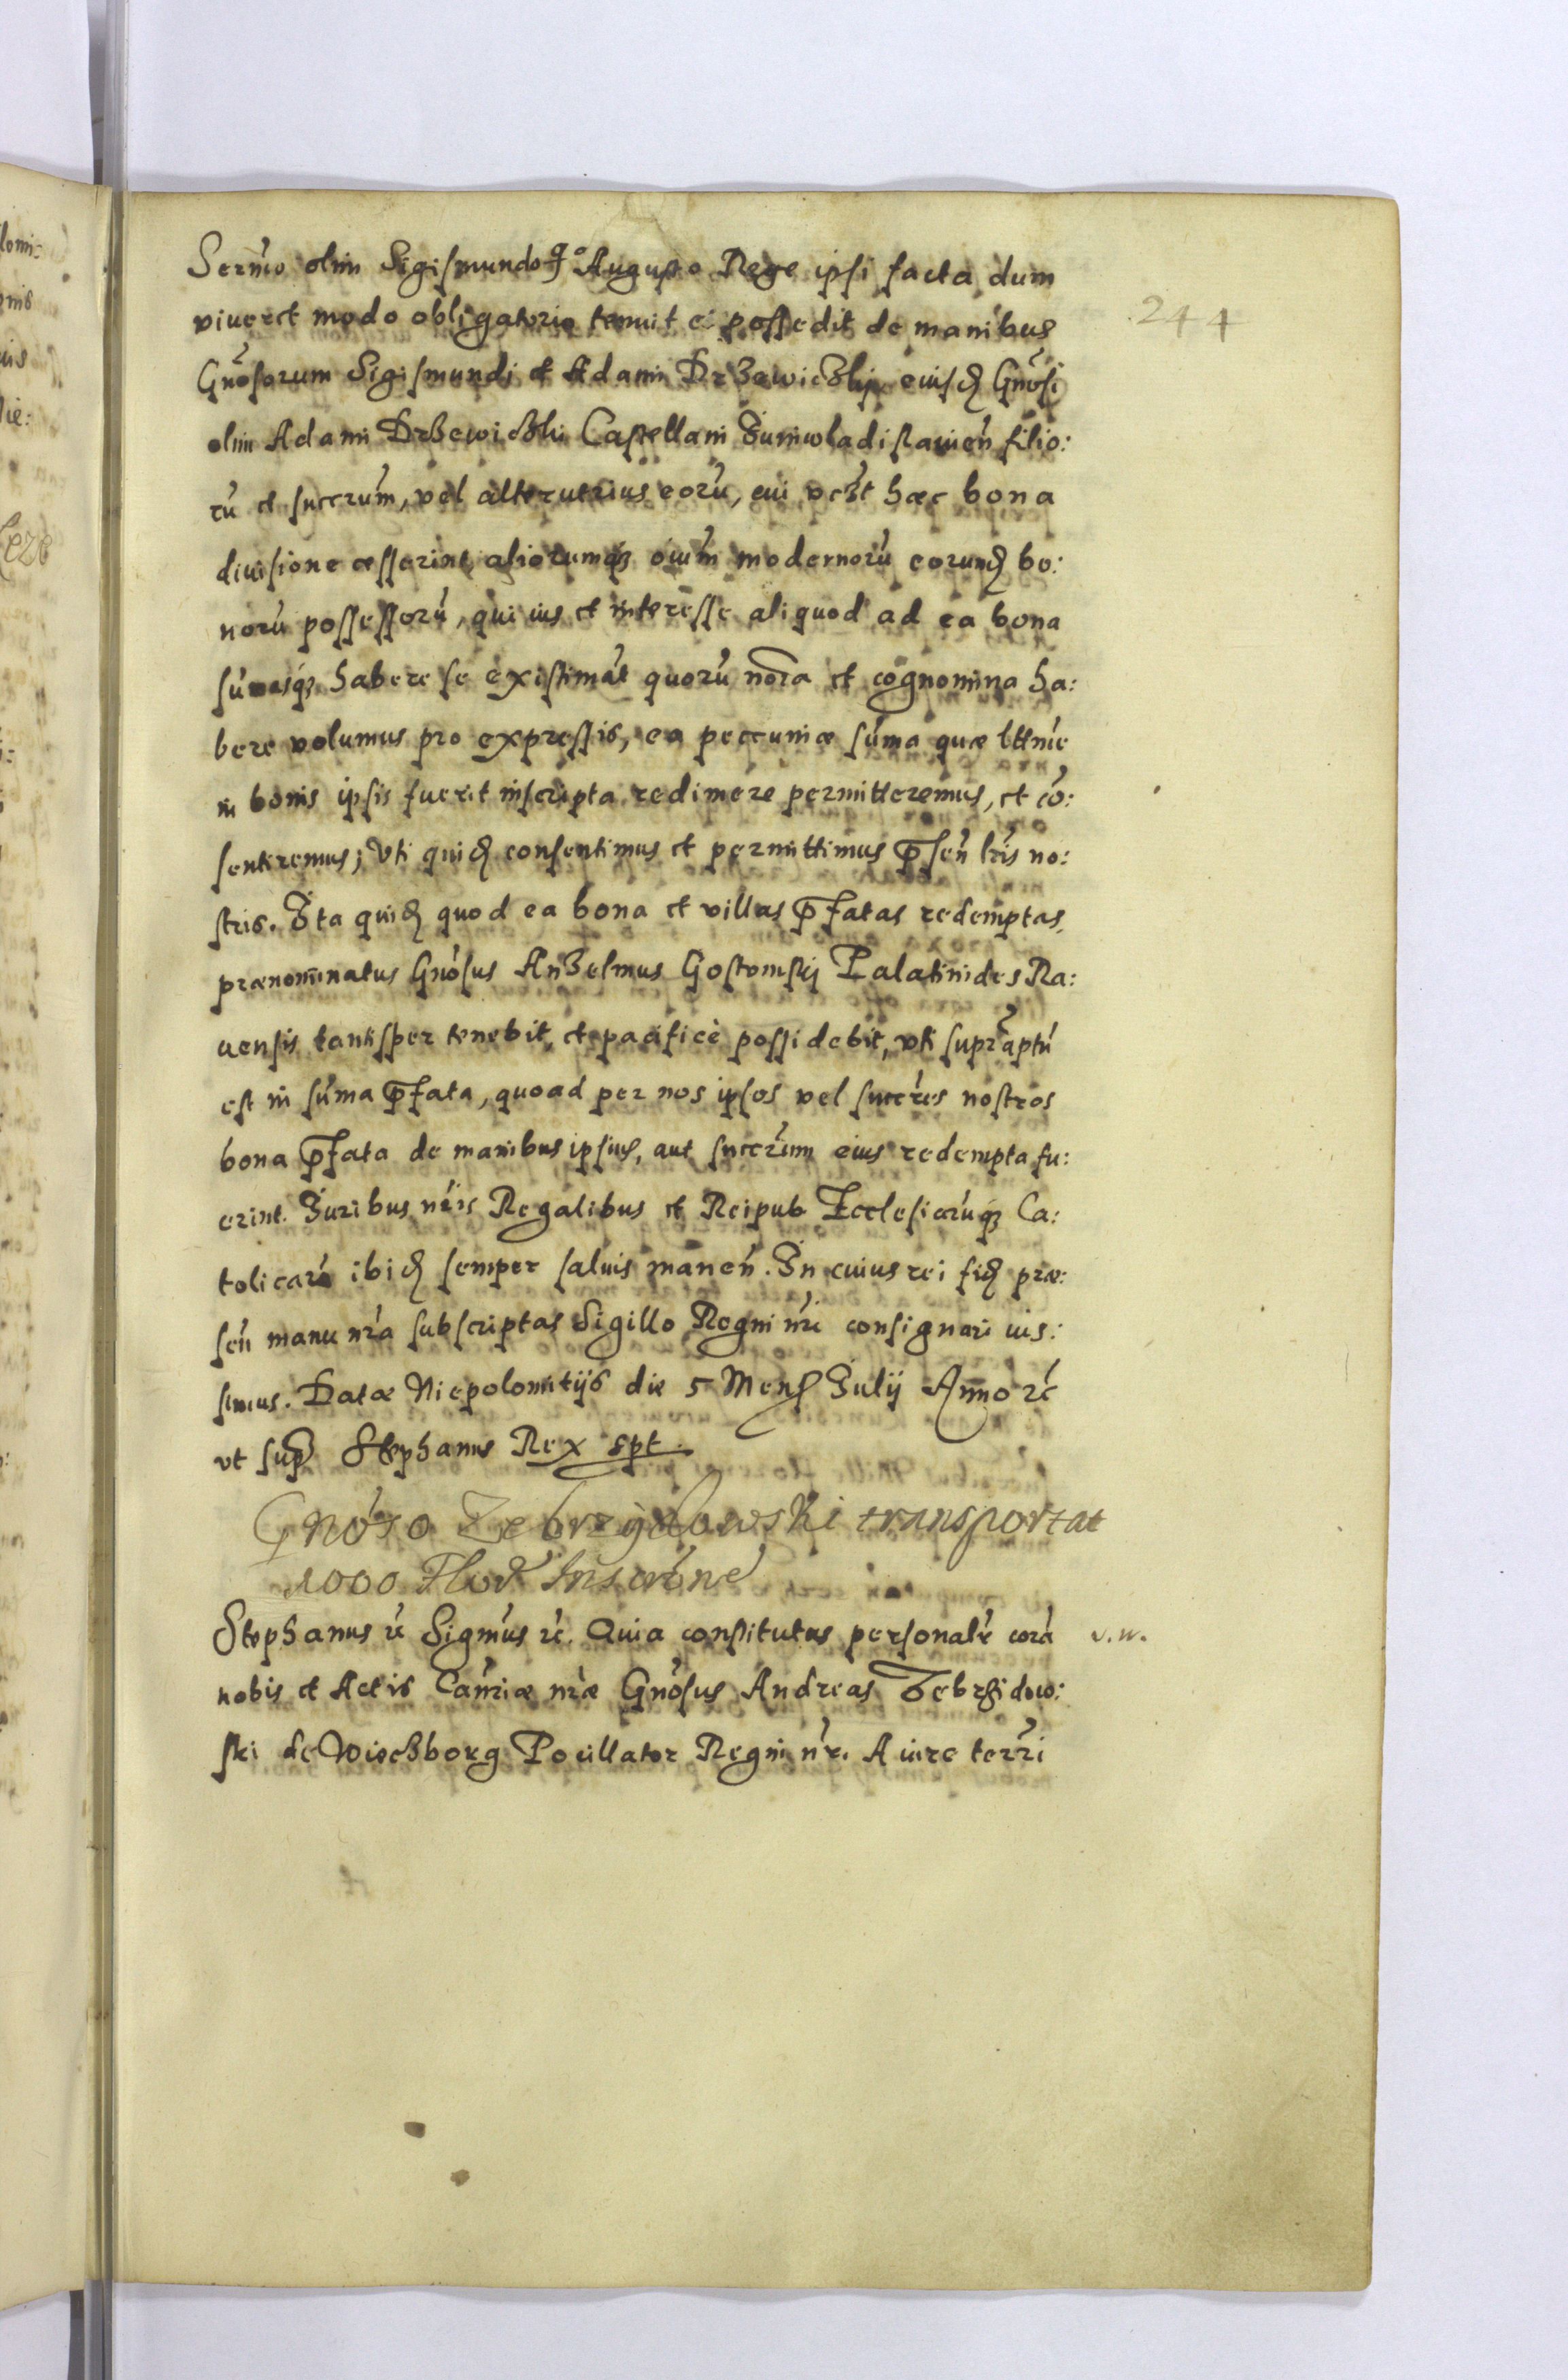 Sermo olim Sigismundo Augusto Rege ipsi facta dum
244
viueret modo obligatorio tenuit et possedit de manibus
Gnosorum Sigismundi et Adami Drzewiczkij eiusd Gnosi
olim Adami Drzewiczki Castellani Juniwladislauien filio:
ru et succrum, vel alterutrius eoru, cui haec bona
diuisione cesserint, aliorumq oium modernoru eorund bo:
noru possessoru, qui ius et interesse aliquod ad ea bona
sumasq habere se existimat quoru noia et cognomina ha:
bere volumus pro expressis, ea peccuniae suma quae lttme
in bonis ipsis fuerit inscripta redimere permitteremus, et co:
sentiremus; Vti quid consentimus et permittimus psen lris no:
stris. Ita quid quod ea bona et villas pfatas redemptas,
praenominatus Gnosus Anzelmus Gostomskij Palatinides Ra:
uensis tantisper tenebit, et pacifice possidebit, vti supraptu
est in suma pfata, quoad per nos ipsos vel succres nostros
bona pfata de manibus ipsius, aut succrum eius redempta fu:
erint. Juribus nris Regalibus et Reipub Ecclesiaruq Ca:
tolicaru ibid semper saluis manen. In cuius rei fid prae:
sen manu nra subscriptas Sigillo Regni nri consignari iús:
simus. Datae Niepolomitijs die 5 Mens Julij Anno rc
vt sup Stephanus Rex spt.
Gnoso Zebrzydowski transportat
1000 Flor Inscrone
Stephanus rc Sigmus rc. Quia constitutus personalr cora
v. w.
nobis et Actis Canriae nrae Gnosus Andreas Zebrzidow:
ski de Wieczborg Pocillator Regni nr. A iure terri